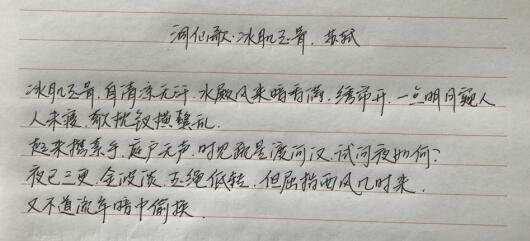 洞仙歌·冰肌玉骨. 苏轼
冰肌玉骨,自清凉无汗.水殿风来暗香满.绣帘开,一点明月窥人
人未寝,欹枕钗横鬓乱.
起来携素手,庭户无声,时见疏星渡河汉.试问夜如何?
夜已三更,金波淡,玉绳低转.但屈指西风几时来,
又不道流年暗中偷换.